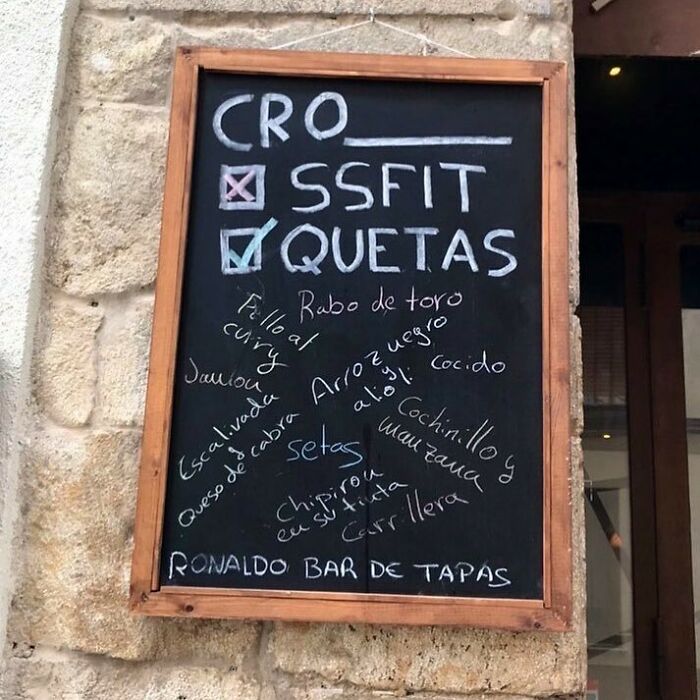 CRO______
SSFIT
QUETAS
Rabo de toro
Pollo al
curry
Arroz negro
y
alioli
Cocido
Jamon
Escalivada
y
Queso de cabra
setas
Cochinillo y
manzana
Chipiron
en su tinta
Carrillera
RONALDO BAR DE TAPAS